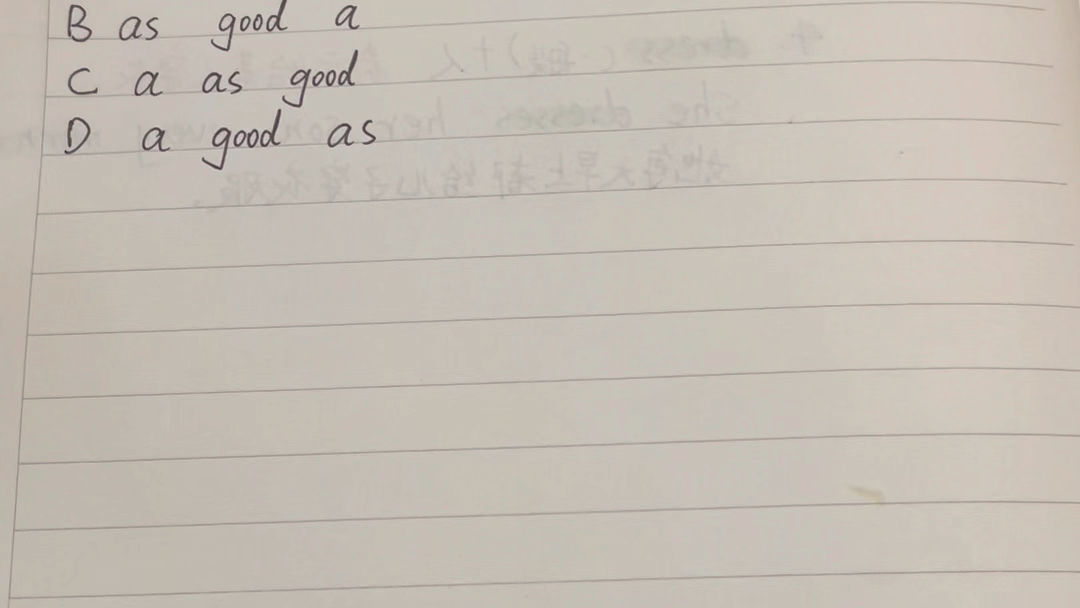 B as good a
C a as good
D a good as